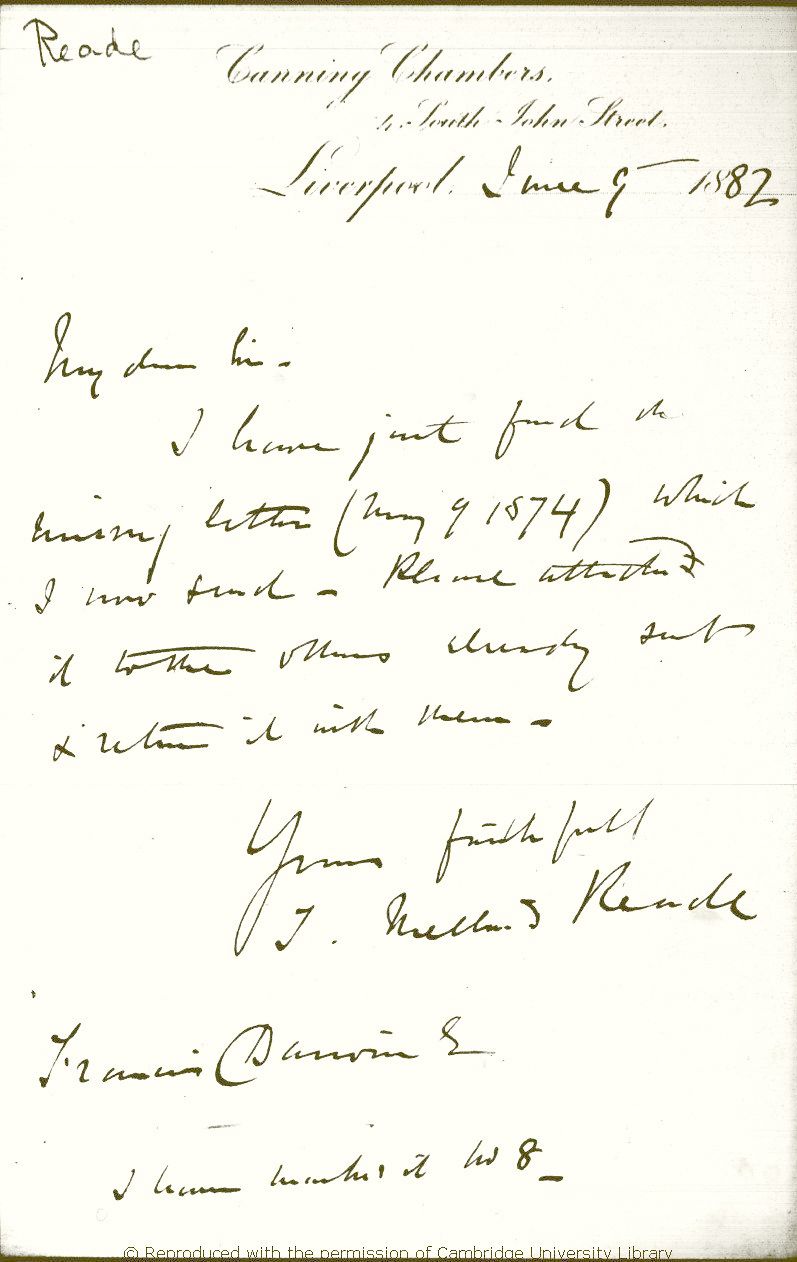 Reade
Canning Chambers,
4, South John Street,
Liverpool. June 9 1882
My dear Sir -
I have just found the
missing letter (May 9 1874) which
I now send - Please attach
it to the others already sent
& return it with them -
Yours faithfully
T. Mellard Reade
Francis Darwin E
I have marked it No 8 -
© Reproduced with the permission of Cambridge University Library